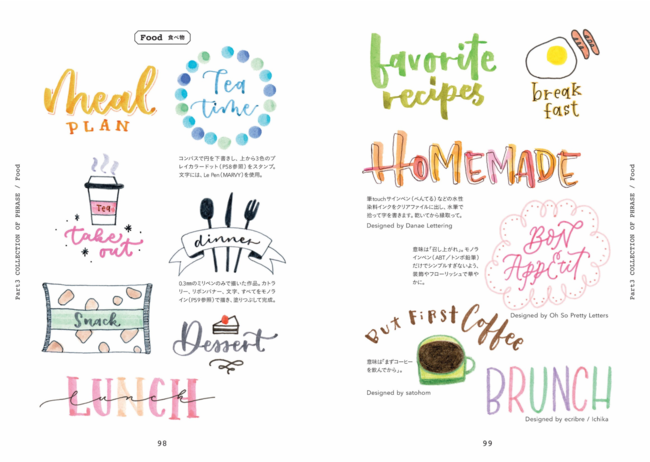 Food 食べ物
meal
PLAN
Tea
time
コンパスで円を下書きし、上から3色のプ
レイカラードット(P58参照)をスタンプ。
文字には、Le Pen(MARVY)を使用。
Tea
take
out
dinner
0.3mmのミリペンのみで描いた作品。カトラ
リー、リボンバナー、文字、すべてをモノラ
イン(P59参照)で描き、塗りつぶして完成。
Snack
Dessert
LUNCH
lunch
Part3 COLLECTION OF PHRASE / Food
98
favorite
recipes
break
fast
HOMEMADE
筆touchサインペン(ぺんてる)などの水性
染料インクをクリアファイルに出し、水筆で
拾って字を書きます。乾いてから縁取って。
Designed by Danae Lettering
意味は「召し上がれ」。モノラ
インペン(ABT/トンボ鉛筆)
だけでシンプルすぎないよう、
装飾やフローリッシュで華や
かに。
BON
Appétit
Designed by Oh So Pretty Letters
But First Coffee
意味は「まずコーヒー
を飲んでから」。
Designed by satohom
BRUNCH
Designed by ecribre / Ichika
Part3 COLLECTION OF PHRASE / Food
99